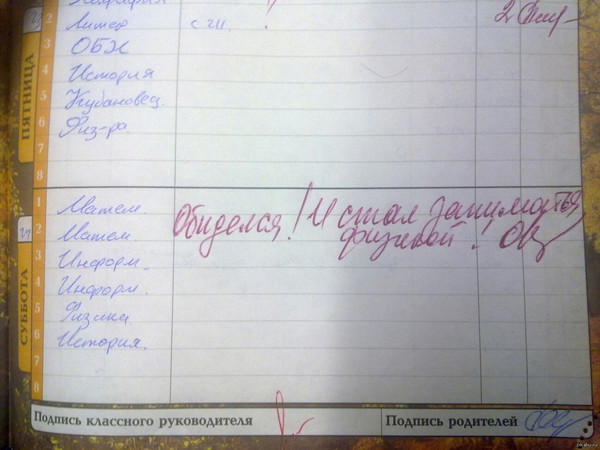 География
2 Литер с ш. ! 2
3 ОБЖ
4 История
5 Кубановед.
6 Физ-ра.
7
8
ПЯТНИЦА
1 Матем.
2 Матем.
3 Информ.
4 Информ.
5 Физика
6 История.
7
8
СУББОТА
Обиделся! И стал заниматься
физикой!
Подпись классного руководителя
Подпись родителей